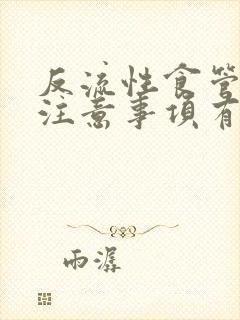 反流性食管
注意事项有
雨潺